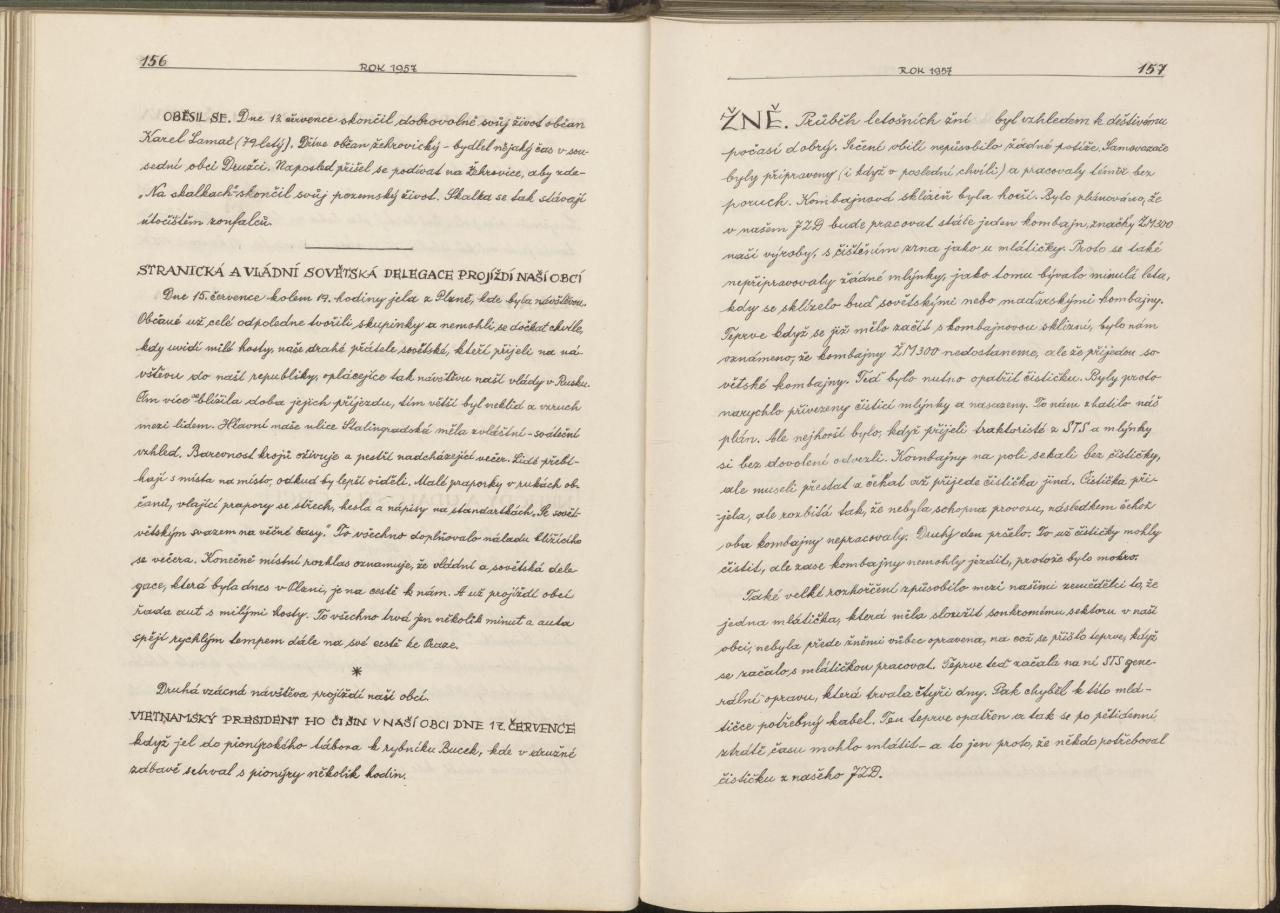 156
ROK 1957
OBĚSIL SE. Dne 13. července skončil dobrovolně svůj život občan
Karel Lamač (79letý). Dříve občan žehrovický – bydlil nějaký čas v sou-
sední obci Družci. Naposled přišel se podívat na Žehrovice, aby zde
„Na skalkách" skončil svůj pozemský život. Skalka se tak stávají
útočištěm zoufalců.
STRANICKÁ A VLÁDNÍ SOVĚTSKÁ DELEGACE PROJÍŽDÍ NAŠÍ OBCÍ
Dne 15. července kolem 19. hodiny jela z Plzně, kde byla návštěvou.
Občané už celé odpoledne tvořili skupinky a nemohli se dočkat chvíle,
kdy uvidí milé hosty, naše drahé přátele sovětské, kteří přijeli na ná-
vštěvu do naší republiky, oplácejíce tak návštěvu naší vlády v Rusku.
Čím více se blížila doba jejich příjezdu, tím větší byl neklid a vzruch
mezi lidem. Hlavní naše ulice Stalingradská měla zvláštní – sváteční
vzhled. Barevnost krojů oživuje a pestří nadcházející večer. Lidé přebí-
hají s místa na místo, odkud by lépší viděli. Malé praporky v rukách ob-
čanů, vlající prapory se střech, hesla a nápisy na standartkách „Se sovět-
větským svazem na věčné časy." To všechno doplňovalo náladu blížícího
se večera. Konečně místní rozhlas oznamuje, že vládní a sovětská dele-
gace, která byla dnes v Plzni, je na cestě k nám. A už projíždí obcí
řada aut s milými hosty. To všechno trvá jen několik minut a auta
spějí rychlým tempem dále na své cestě ke Praze.
*
Druhá vzácná návštěva projíždí naší obcí.
VIETNAMSKÝ PRESIDENT HO ČI ŠIN V NAŠÍ OBCI DNE 17. ČERVENCE
když jel do pionýrského tábora k rybníku Bucek, kde v družné
zábavě setrval s pionýry několik hodin.
ROK 1957
157
ŽNĚ. Průběh letošních žní byl vzhledem k deštivému
počasí dobrý. Sečení obilí nepůsobilo žádné potíže. Samovazače
byly připraveny (i když v poslední chvíli) a pracovaly téměř bez
poruch. Kombajnová sklizeň byla horší. Bylo plánováno, že
v našem JZD bude pracovat stále jeden kombajn, značky ŽM 300
naší výroby, s čištěním zrna jako u mlátičky. Proto se také
nepřipravovaly žádné mlýnky, jako tomu bývalo minulá leta,
kdy se sklízelo buď sovětskými nebo maďarskými kombajny.
Teprve když se již mělo začít s kombajnovou sklizní, bylo nám
oznámeno, že kombajny ŽM 300 nedostaneme, ale že přijedou so-
větské kombajny. Teď bylo nutno opatřit čističku. Byly proto
narychlo přivezeny čisticí mlýnky a nasazeny. To nám zhatilo náš
plán. Ale nejhorší bylo, když přijeli traktoristé z STS a mlýnky
si bez dovolení odvezli. Kombajny na poli sekali bez čističky,
ale museli přestat a čekat až přijede čistička jiná. Čistička při-
-jela, ale rozbitá tak, že nebyla schopna provozu, následkem čehož
oba kombajny nepracovaly. Druhý den pršelo. To už čističky mohly
čistit, ale zase kombajny nemohly jezdit, protože bylo mokro.
Také velké rozhořčení způsobilo mezi našimi zemědělci to, že
jedna mlátička, která měla sloužit soukromému sektoru v naší
obci, nebyla přede žněmi vůbec opravena, na což se přišlo teprve, když
se začalo s mlátičkou pracovat. Teprve teď začala na ní STS gene-
rální opravu, která trvala čtyři dny. Pak chyběl k této mlá-
tičce potřebný kabel. Ten teprve opatřen a tak se po pětidenní
ztrátě času mohlo mlátit – a to jen proto, že někdo potřeboval
čističku z našeho JZD.